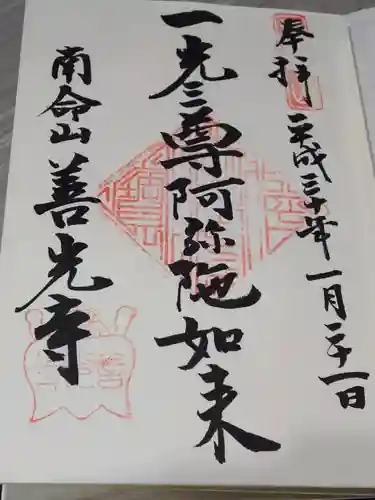 奉拝
平成三十年一月二十一日
一光三尊阿弥陀如来
南命山善光寺